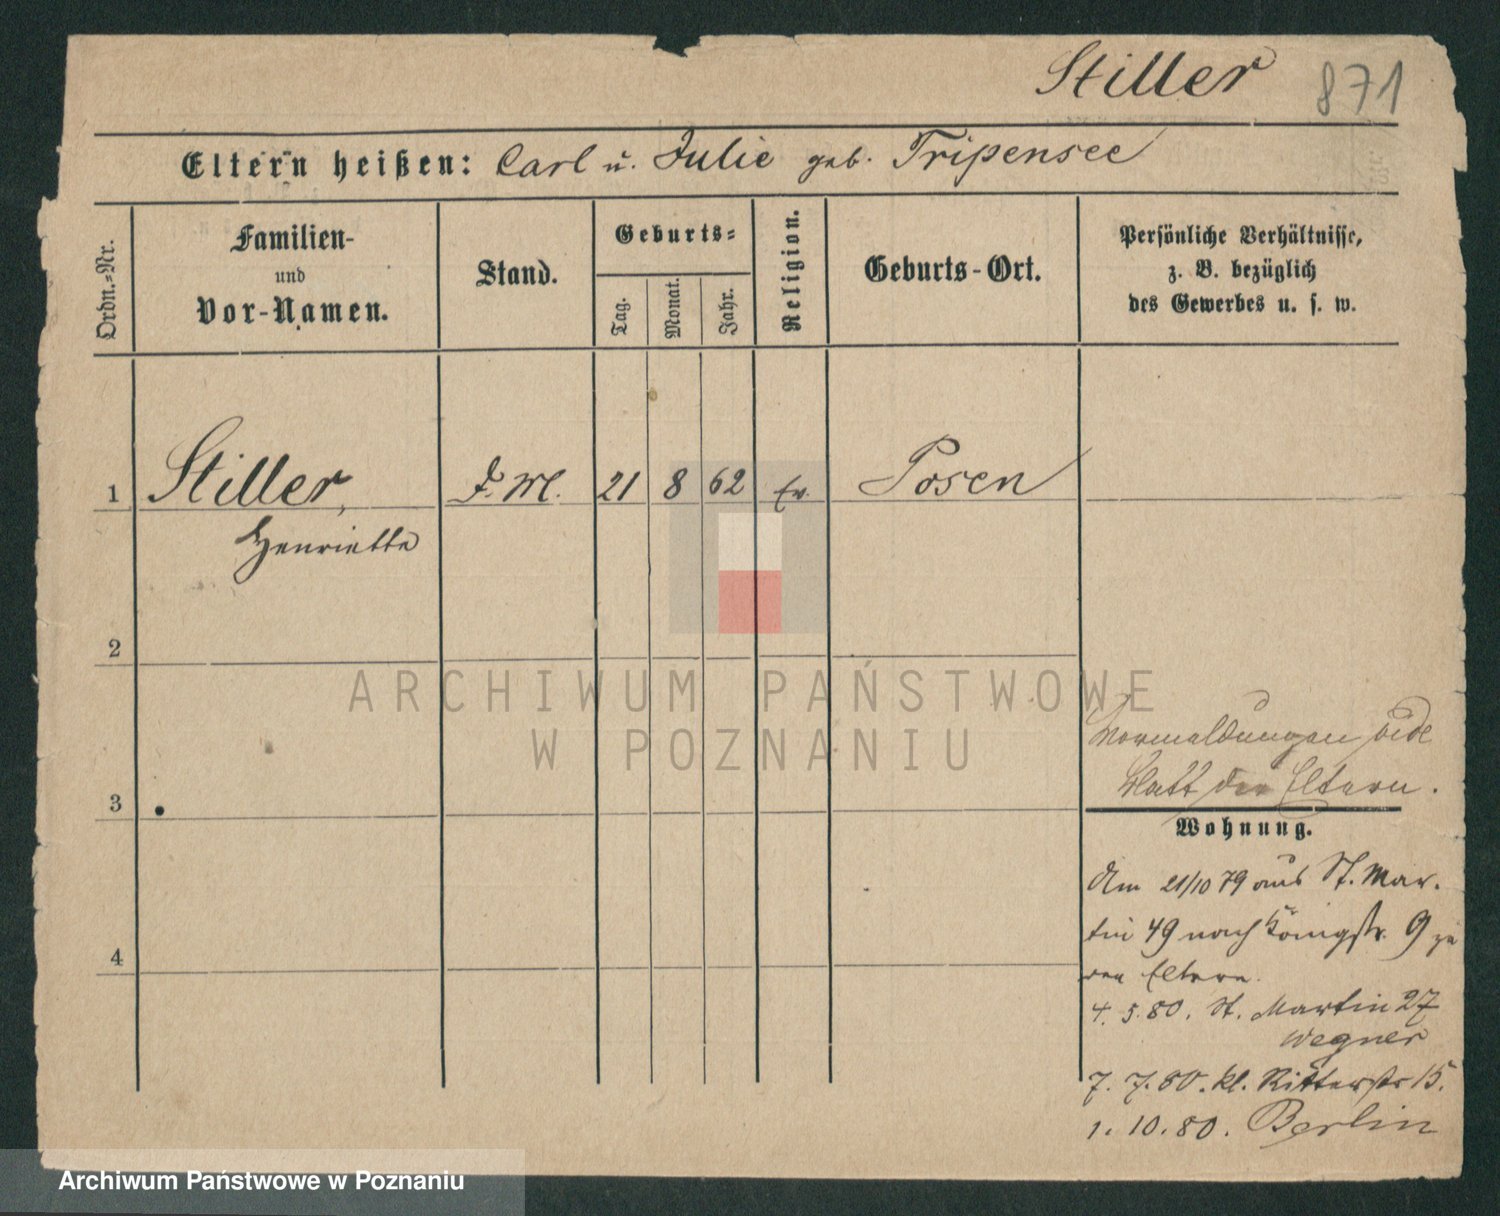 Stiller 871
Eltern heißen: Carl u. Julie geb. Tripensee
Ordn.-Nr.
Familien-
und
Vor-Namen.
Stand.
Geburts-
Tag.
Monat.
Jahr.
Religion.
Geburts-Ort.
Persönliche Verhältnisse,
z. B. bezüglich
des Gewerbes u. s. w.
1 Stiller, D. M. 21 8 62 Ev. Posen
Henriette
2
3
4
Vormeldungen vide
Blatt der Eltern.
Wohnung.
Am 21/10 79 aus St. Mar-
tin 49 nach Königstr. 9 zu
den Eltern.
4. 5. 80. St. Martin 27
Wegner
7. 7. 80. kl. Ritterstr 15.
1. 10. 80. Berlin
ARCHIWUM PAŃSTWOWE
W POZNANIU
Archiwum Państwowe w Poznaniu